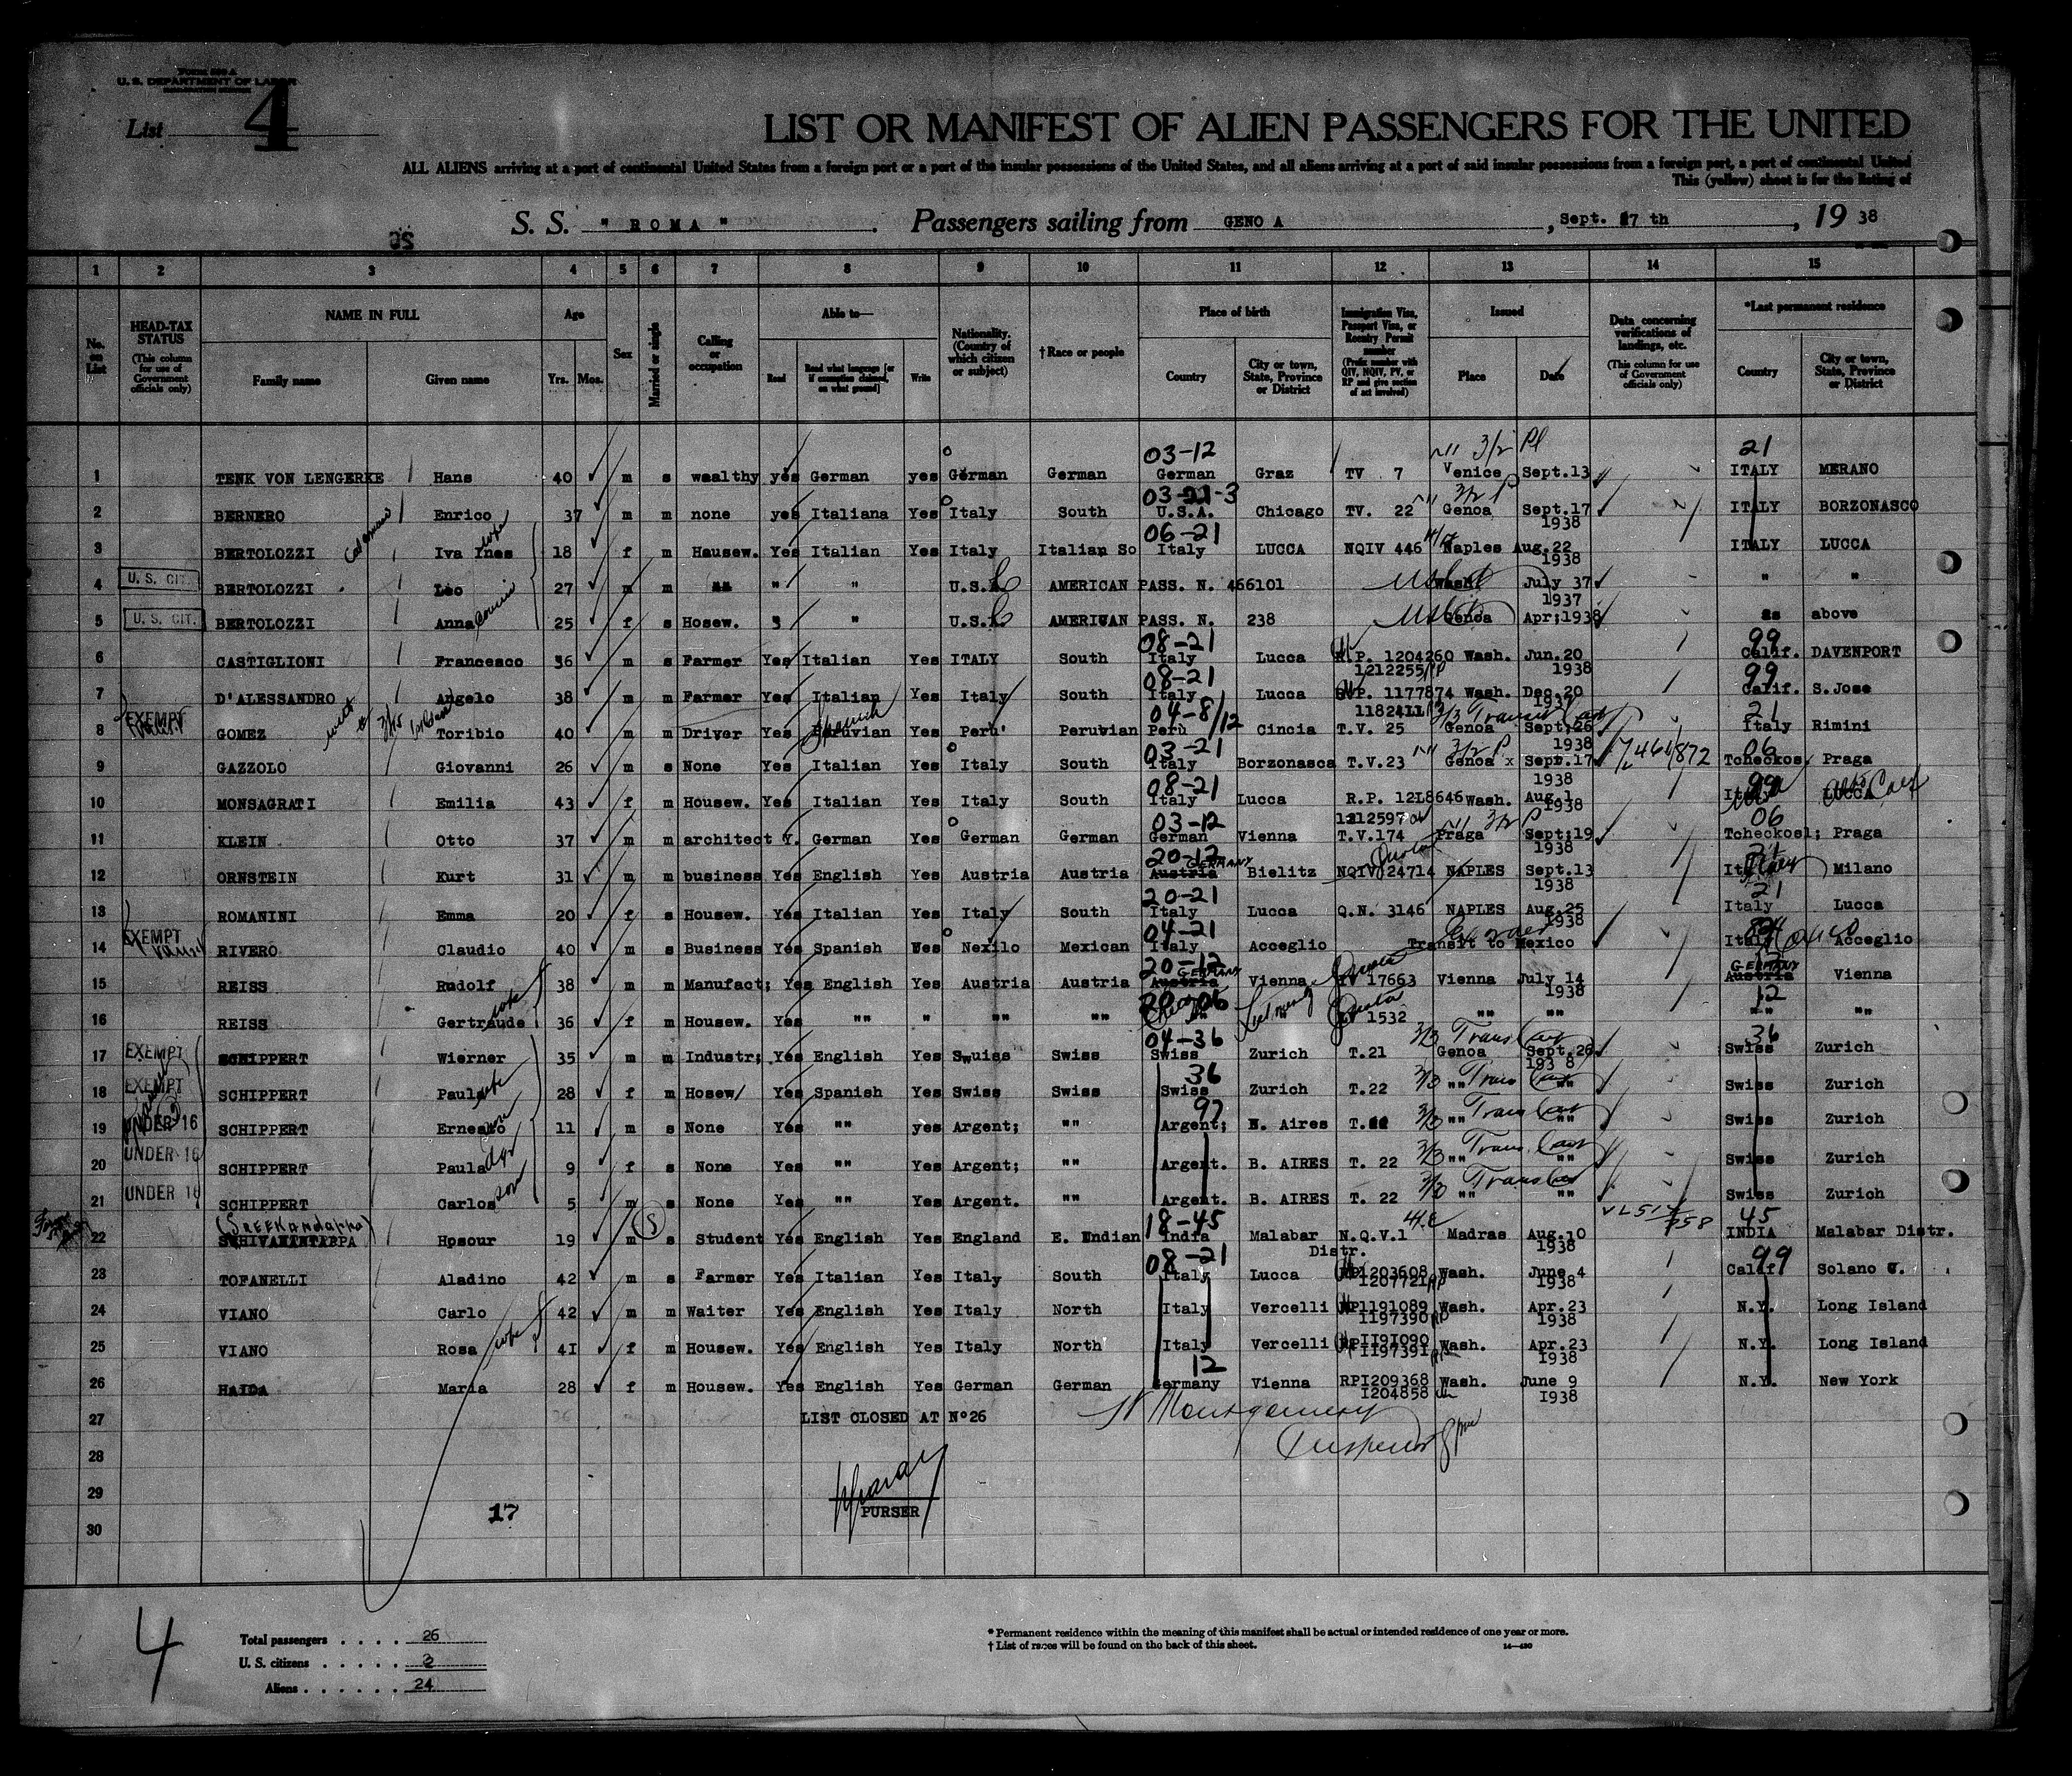 FORM 500 A
U. S. DEPARTMENT OF LABOR
IMMIGRATION SERVICE
List 4
LIST OR MANIFEST OF ALIEN PASSENGERS FOR THE UNITED
ALL ALIENS arriving at a port of continental United States from a foreign port or a port of the insular possessions of the United States, and all aliens arriving at a port of said insular possessions from a foreign port, a port of continental United
This (yellow) sheet is for the listing of
S. S. " ROMA " Passengers sailing from GENOA , Sept. 27 th , 19 38
1 2 3 4 5 6 7 8 9 10 11 12 13 14 15
No. on List
HEAD-TAX STATUS (This column for use of Government officials only)
NAME IN FULL Family name Given name
Age Yrs. Mos.
Sex
Married or single
Calling or occupation
Able to— Read Read what language [or if exemption claimed, on what ground] Write
Nationality. (Country of which citizen or subject)
†Race or people
Place of birth Country City or town, State, Province or District
Immigration Visa, Passport Visa, or Reentry Permit number (Prefix number with QIV, NQIV, PV, or RP and give section of act involved)
Issued Place Date
Data concerning verifications of landings, etc. (This column for use of Government officials only)
*Last permanent residence Country City or town, State, Province or District
03-12 3/2 Pl 21
1 TENK VON LENGERKE Hans 40 m s wealthy yes German yes German German German Graz TV 7 Venice Sept.13 ITALY MERANO
03-21-3 3/2 P
2 BERNERO Enrico 37 m m none yes Italiana Yes Italy South U.S.A. Chicago TV. 22 Genoa Sept.17 1938 ITALY BORZONASCO
06-21
3 BERTOLOZZI Iva Ines wife 18 f m Hausew. Yes Italian Yes Italy Italian So Italy LUCCA NQIV 446 Naples Aug.22 1938 ITALY LUCCA
4 U. S. CIT. BERTOLOZZI Leo 27 m m " " U.S. AMERICAN PASS. N. 466101 Wash July 37 1937 " "
5 U. S. CIT. BERTOLOZZI Anna cousin 25 f s Hosew. " U.S. AMERICAN PASS. N. 238 Genoa Apr;1938 as above
08-21 99
6 CASTIGLIONI Francesco 36 m s Farmer Yes Italian Yes ITALY South Italy Lucca R.P. 1204260 Wash. Jun.20 1938 Calif. DAVENPORT
1212255
08-21 99
7 D'ALESSANDRO Angelo 38 m m Farmer Yes Italian Yes Italy South Italy Lucca R.P. 1177874 Wash. Dec.20 1937 Calif. S.Jose
1182411
04-8/12 21
8 EXEMPT GOMEZ Toribio 40 m m Driver Yes Peruvian Spanish Yes Peru Peruvian Perù Cincia T.V. 25 Genoa Sept;26 1938 Italy Rimini
03-21 3/2 P 06
9 GAZZOLO Giovanni 26 m s None Yes Italian Yes Italy South Italy Borzonasca T.V.23 Genoa x Sept.17 1938 Tcheckos Praga
08-21 99
10 MONSAGRATI Emilia 43 f m Housew. Yes Italian Yes Italy South Italy Lucca R.P. 12L8646 Wash. Aug.1 1938 Italy LUCCA
1212597
03-12 3/2 P 06
11 KLEIN Otto 37 m m architect Y. German Yes German German German Vienna T.V.174 Praga Sept;19 1938 Tcheckosl; Praga
20-12 GERMANY Quota 21
12 ORNSTEIN Kurt 31 m m business Yes English Yes Austria Austria Austria Bielitz NQIV 24714 NAPLES Sept.13 1938 Italy Milano
20-21 21
13 ROMANINI Emma 20 f s Housew. Yes Italian Yes Italy South Italy Lucca Q.N. 3146 NAPLES Aug.25 1938 Italy Lucca
04-21
14 EXEMPT RIVERO Claudio 40 m s Business Yes Spanish Wes Nexilo Mexican Italy Acceglio Transit to Mexico Italy Mexico Acceglio
20-12 GERMANY Quota GERMANY
15 REISS Rudolf 38 m m Manufact; Yes English Yes Austria Austria Austria Vienna TV 17663 Vienna July 14 1938 Austria Vienna
20-06 Quota 12
16 REISS Gertraude wife 36 f m Housew. Yes "" " "" "" 1532 "" "" "" ""
04-36 3/3 36
17 EXEMPT SCHIPPERT Wierner 35 m m Industr; Yes English Yes Swuiss Swiss Swiss Zurich T.21 Genoa Sept.26 1938 Swiss Zurich
36 3/3
18 EXEMPT SCHIPPERT Paula wife 28 f m Hosew/ Yes Spanish Yes Swiss Swiss Swiss Zurich T.22 "" "" Swiss Zurich
97 3/3
19 UNDER 16 SCHIPPERT Ernesto son 11 m s None Yes "" yes Argent; "" Argent; B. Aires "" "" Swiss Zurich
3/3
20 UNDER 16 SCHIPPERT Paula dgr 9 f s None Yes "" Yes Argent; "" Argent. B. AIRES T. 22 "" "" Swiss Zurich
3/3
21 UNDER 16 SCHIPPERT Carlos son 5 m s None Yes "" Yes Argent. "" Argent. B. AIRES T. 22 "" "" Swiss Zurich
(SREEKANDAPHA) S 18-45 45
22 Hosour 19 m s Student Yes English Yes England E. Undian India Malabar Distr. N.Q.V.1 Madras Aug.10 1938 INDIA Malabar Distr.
08-21 99
23 TOFANELLI Aladino 42 m s Farmer Yes Italian Yes Italy South Italy Lucca RP1203608 Wash. June 4 1938 Calif. Solano C.
1207721
24 VIANO Carlo 42 m m Waiter Yes English Yes Italy North Italy Vercelli RP1191089 Wash. Apr.23 1938 N.Y. Long Island
1197390
25 VIANO Rosa wife 4I f m Housew. Yes English Yes Italy North Italy Vercelli RPII9I090 Wash. Apr.23 1938 N.Y. Long Island
1197391
12
26 HAIDA Maria 28 f m Housew. Yes English Yes German German Germany Vienna RPI209368 Wash. June 9 I938 N.Y. New York
I204858
27 LIST CLOSED AT N°26 Montgomery
Inspector
28
29
17 PURSER
30
4
Total passengers . . . . 26
U. S. citizens . . . . . 2
Aliens . . . . . . 24
* Permanent residence within the meaning of this manifest shall be actual or intended residence of one year or more.
† List of races will be found on the back of this sheet. 14—430